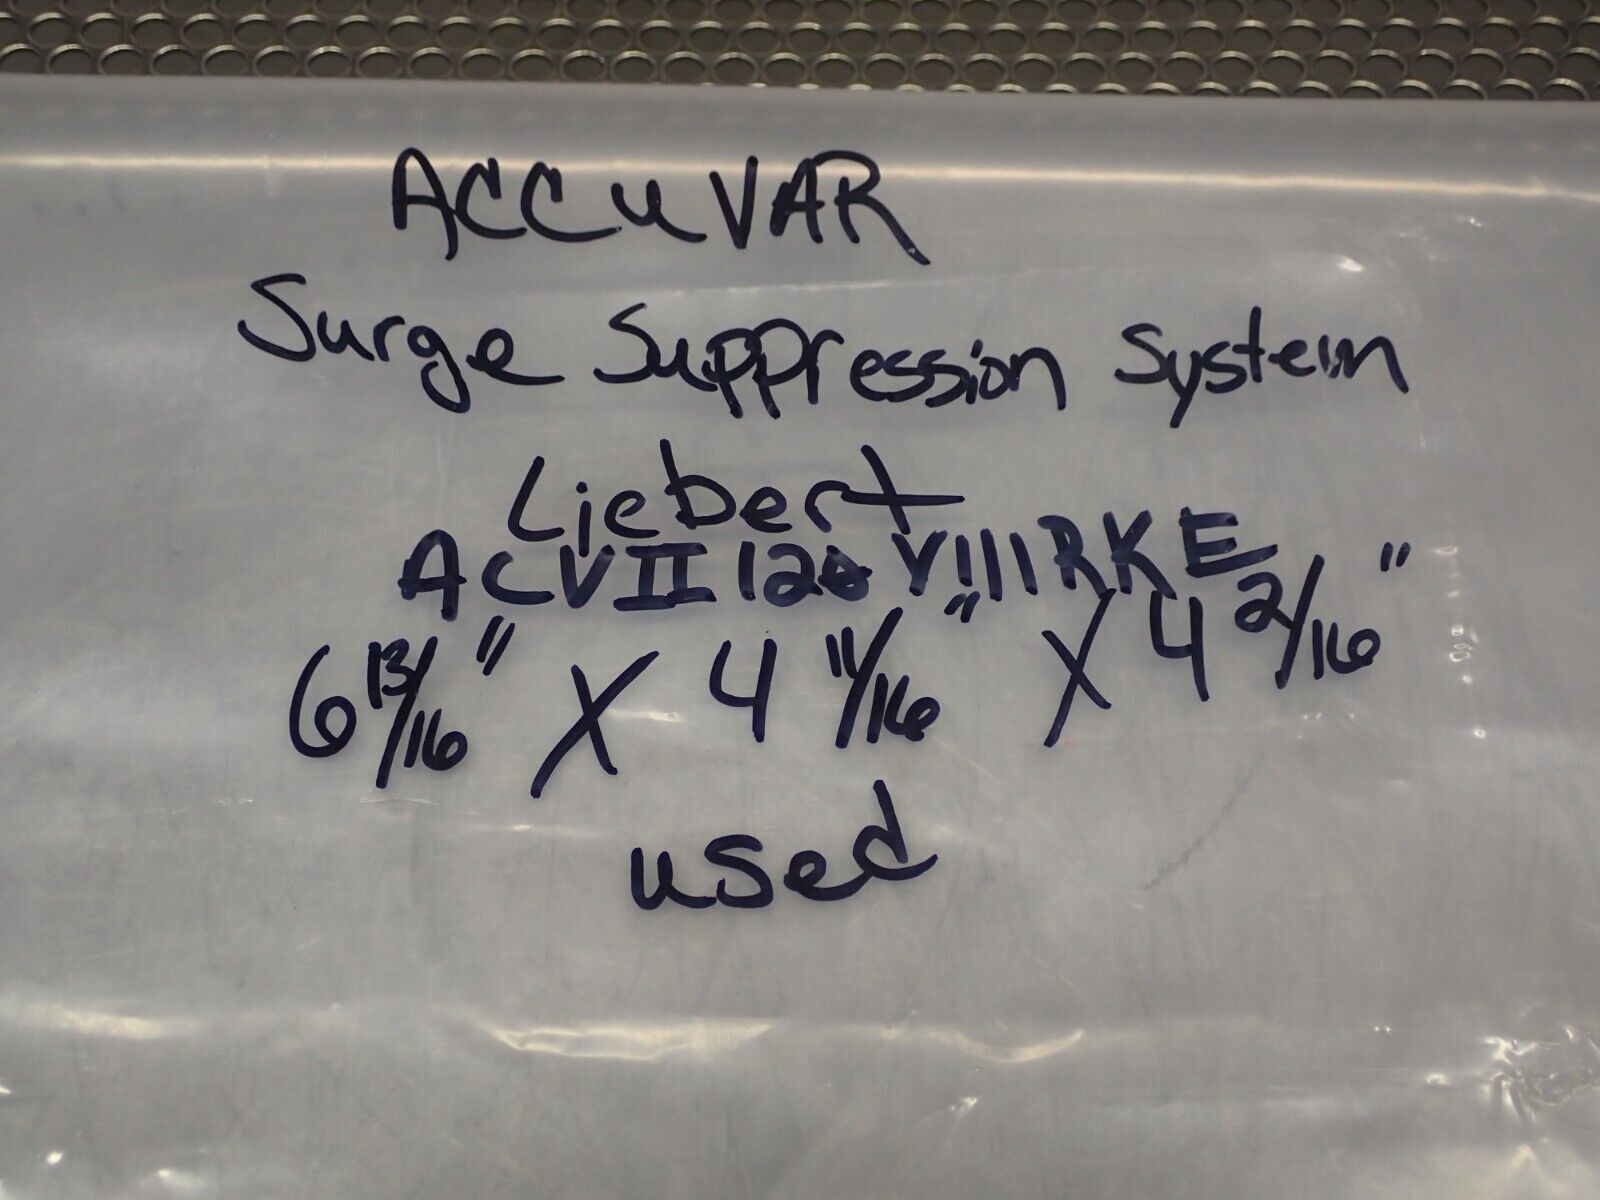 ACCUVAR
Surge Suppression System
Liebert
ACVII120V111RKE
6 13/16" X 4 11/16" X 4 2/16"
used